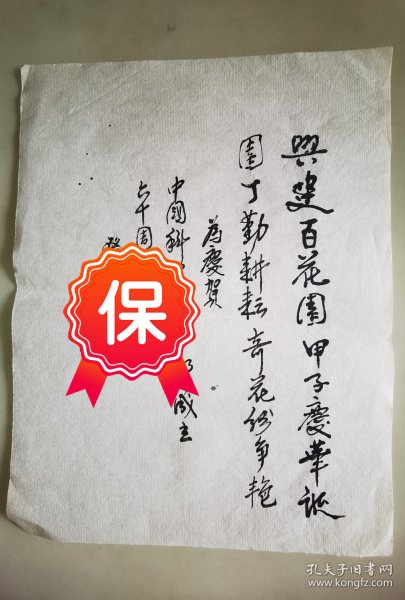 興建百花園甲子慶華誕
園丁勤耕耘奇花纷争艳
為慶賀
中國科
成立
六十周
保
孔夫子旧书网
www.kongfz.com